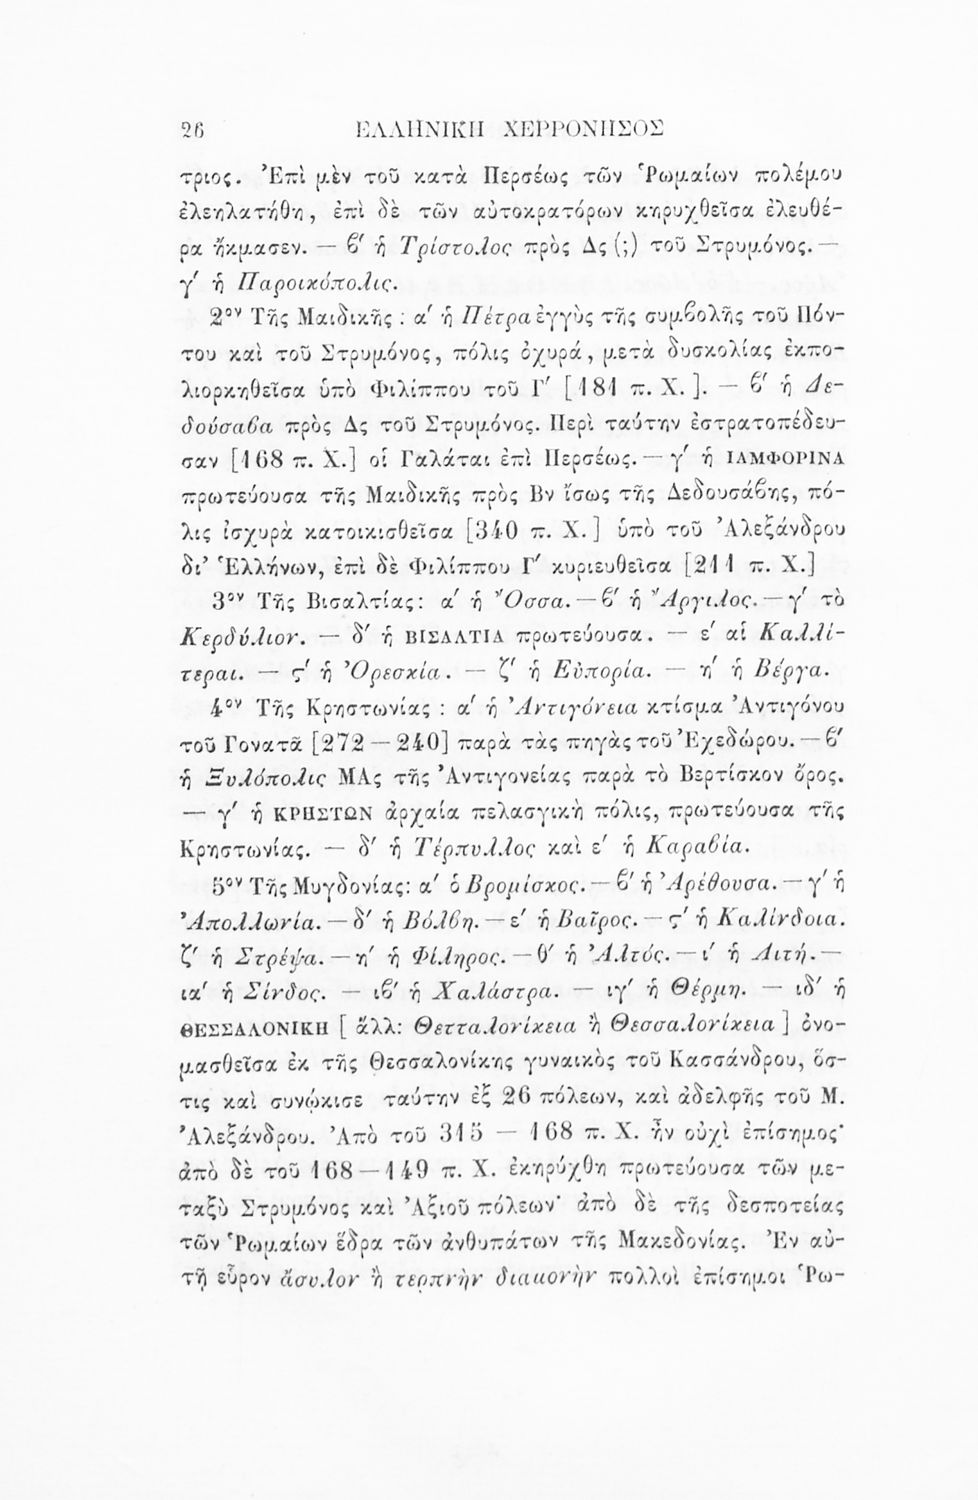 26 ΕΛΛΗΝΙΚΗ ΧΕΡΡΟΝΗΣΟΣ
τριος. Ἐπὶ μὲν τοῦ κατὰ Περσέως τῶν Ῥωμαίων πολέμου
ἐλεηλατήθη, ἐπὶ δὲ τῶν αὐτοκρατόρων κηρυχθεῖσα ἐλευθέ-
ρα ἤκμασεν. — ϐ′ ἡ Τρίστολος πρὸς Δς (;) τοῦ Στρυμόνος. —
γ′ ἡ Παροικόπολις.
2ον Τῆς Μαιδικῆς : α′ ἡ Πέτρα ἐγγὺς τῆς συμϐολῆς τοῦ Πόν-
του καὶ τοῦ Στρυμόνος, πόλις ὀχυρά, μετὰ δυσκολίας ἐκπο-
λιορκηθεῖσα ὑπὸ Φιλίππου τοῦ Γ′ [181 π. Χ.]. — ϐ′ ἡ Δε-
δούσαϐα πρὸς Δς τοῦ Στρυμόνος. Περὶ ταύτην ἐστρατοπέδευ-
σαν [168 π. Χ.] οἱ Γαλάται ἐπὶ Περσέως. — γ′ ἡ ΙΑΜΦΟΡΙΝΑ
πρωτεύουσα τῆς Μαιδικῆς πρὸς Βν ἴσως τῆς Δεδουσάϐης, πό-
λις ἰσχυρὰ κατοικισθεῖσα [340 π. Χ.] ὑπὸ τοῦ Ἀλεξάνδρου
δι’ Ἑλλήνων, ἐπὶ δὲ Φιλίππου Γ′ κυριευθεῖσα [211 π. Χ.]
3ον Τῆς Βισαλτίας: α′ ἡ Ὄσσα. — ϐ′ ἡ Ἄργιλος. — γ′ τὸ
Κερδύλιον. — δ′ ἡ ΒΙΣΑΛΤΙΑ πρωτεύουσα. — ε′ αἱ Καλλί-
τεραι. — ϛ′ ἡ Ὀρεσκία. — ζ′ ἡ Εὐπορία. — η′ ἡ Βέργα.
4ον Τῆς Κρηστωνίας : α′ ἡ Ἀντιγόνεια κτίσμα Ἀντιγόνου
τοῦ Γονατᾶ [272 — 240] παρὰ τὰς πηγὰς τοῦ Ἐχεδώρου. — ϐ′
ἡ Ξυλόπολις ΜΑς τῆς Ἀντιγονείας παρὰ τὸ Βερτίσκον ὄρος.
— γ′ ἡ ΚΡΗΣΤΩΝ ἀρχαία πελασγικὴ πόλις, πρωτεύουσα τῆς
Κρηστωνίας. — δ′ ἡ Τέρπυλλος καὶ ε′ ἡ Καραϐία.
5ον Τῆς Μυγδονίας: α′ ὁ Βρομίσκος. — ϐ′ ἡ Ἀρέθουσα. — γ′ ἡ
Ἀπολλωνία. — δ′ ἡ Βόλϐη. — ε′ ἡ Βαῖρος. — ϛ′ ἡ Καλίνδοια.
ζ′ ἡ Στρέψα. — η′ ἡ Φίληρος. — θ′ ἡ Ἀλτός. — ι′ ἡ Λιτή. —
ια′ ἡ Σίνδος. — ιϐ′ ἡ Χαλάστρα. — ιγ′ ἡ Θέρμη. — ιδ′ ἡ
ΘΕΣΣΑΛΟΝΙΚΗ [ ἄλλ: Θετταλονίκεια ἢ Θεσσαλονίκεια ] ὀνο-
μασθεῖσα ἐκ τῆς Θεσσαλονίκης γυναικὸς τοῦ Κασσάνδρου, ὅσ-
τις καὶ συνῴκισε ταύτην ἐξ 26 πόλεων, καὶ ἀδελφῆς τοῦ Μ.
Ἀλεξάνδρου. Ἀπὸ τοῦ 315 — 168 π. Χ. ἦν οὐχὶ ἐπίσημος·
ἀπὸ δὲ τοῦ 168 — 149 π. Χ. ἐκηρύχθη πρωτεύουσα τῶν με-
ταξὺ Στρυμόνος καὶ Ἀξιοῦ πόλεων· ἀπὸ δὲ τῆς δεσποτείας
τῶν Ῥωμαίων ἕδρα τῶν ἀνθυπάτων τῆς Μακεδονίας. Ἐν αὐ-
τῇ εὗρον ἄσυλον ἢ τερπνὴν διαμονὴν πολλοὶ ἐπίσημοι Ῥω-